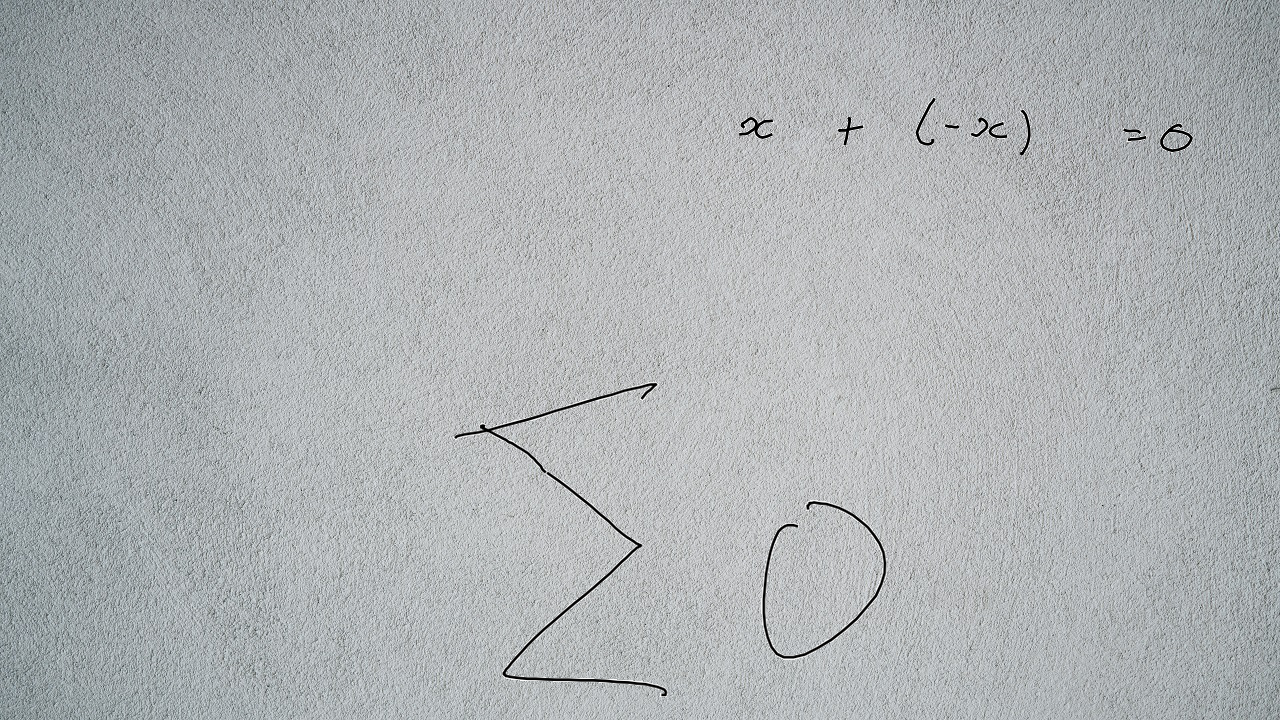 x + (-x) = 0
Σ 0